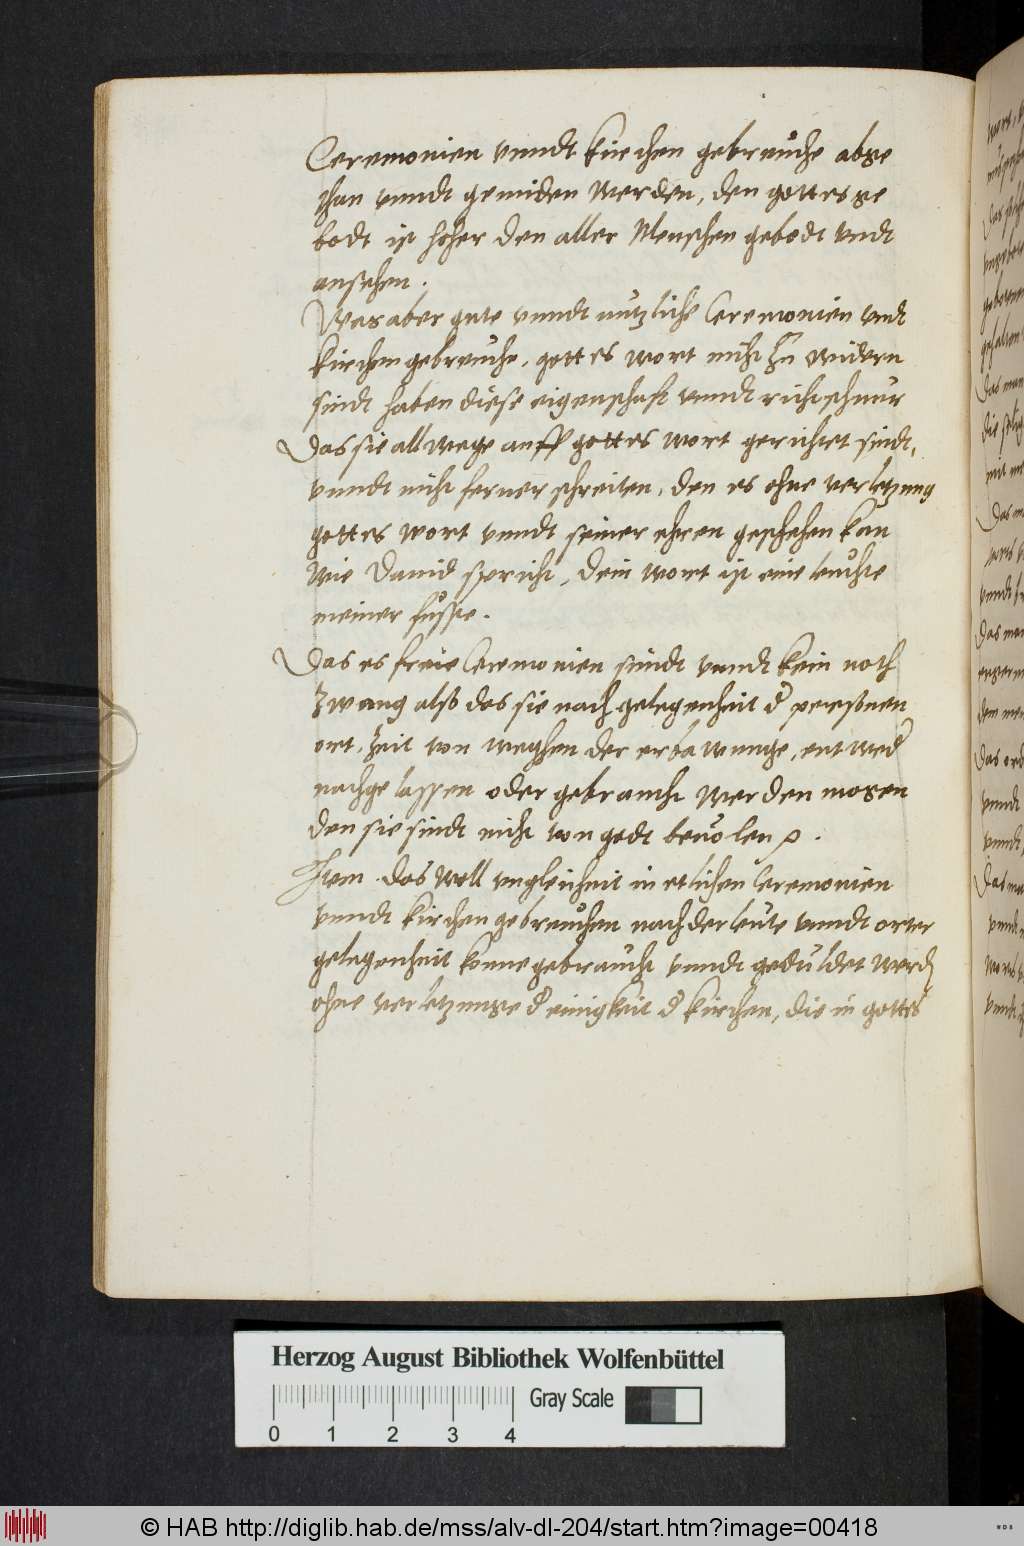 Ceremonien vnndt kirchen gebreuche abge
than vnndt gemiden werden, den gottes ge
bodt ist hoher den aller Menschen gebodt vndt
ansehen.
Was aber gute vnndt nutzliche Ceremonien vndt
kirchen gebreuche, gottes wort nicht zu widern
sindt haben diese eigenschafft vnndt richtschnur
Das sie allwege auff gottes wort gerichtet sindt,
vnndt nicht ferner schreiten, den es ohne verletzung
gottes wort vnndt seiner ehren geschehen kan
Wie Dauid spricht, Dein wort ist eine leuchte
meiner fusse.
Das es freie Ceremonien sindt vnndt kein noth
zwang alß das sie nach gelegenheit d personen
ort, zeit von weghen der erbawunge, entwed
nachgelassen oder gebraucht werden mogen
den sie sindt nicht von godt beuolen
Item das woll vngleicheit in etlichen Ceremonien
vnndt kirchen gebreuchen nach der leute vnndt orter
gelegenheit konne gebraucht vnndt geduldet werd
ohne verletzunge d einigkeit d kirchen, die in gottes
Herzog August Bibliothek Wolfenbüttel
Gray Scale
0 1 2 3 4
© HAB http://diglib.hab.de/mss/alv-dl-204/start.htm?image=00418